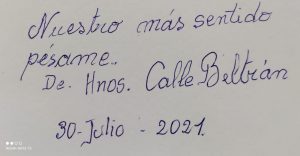 Nuestro más sentido
pésame..
De. Hnos. Calle Beltrán
30-Julio - 2021.